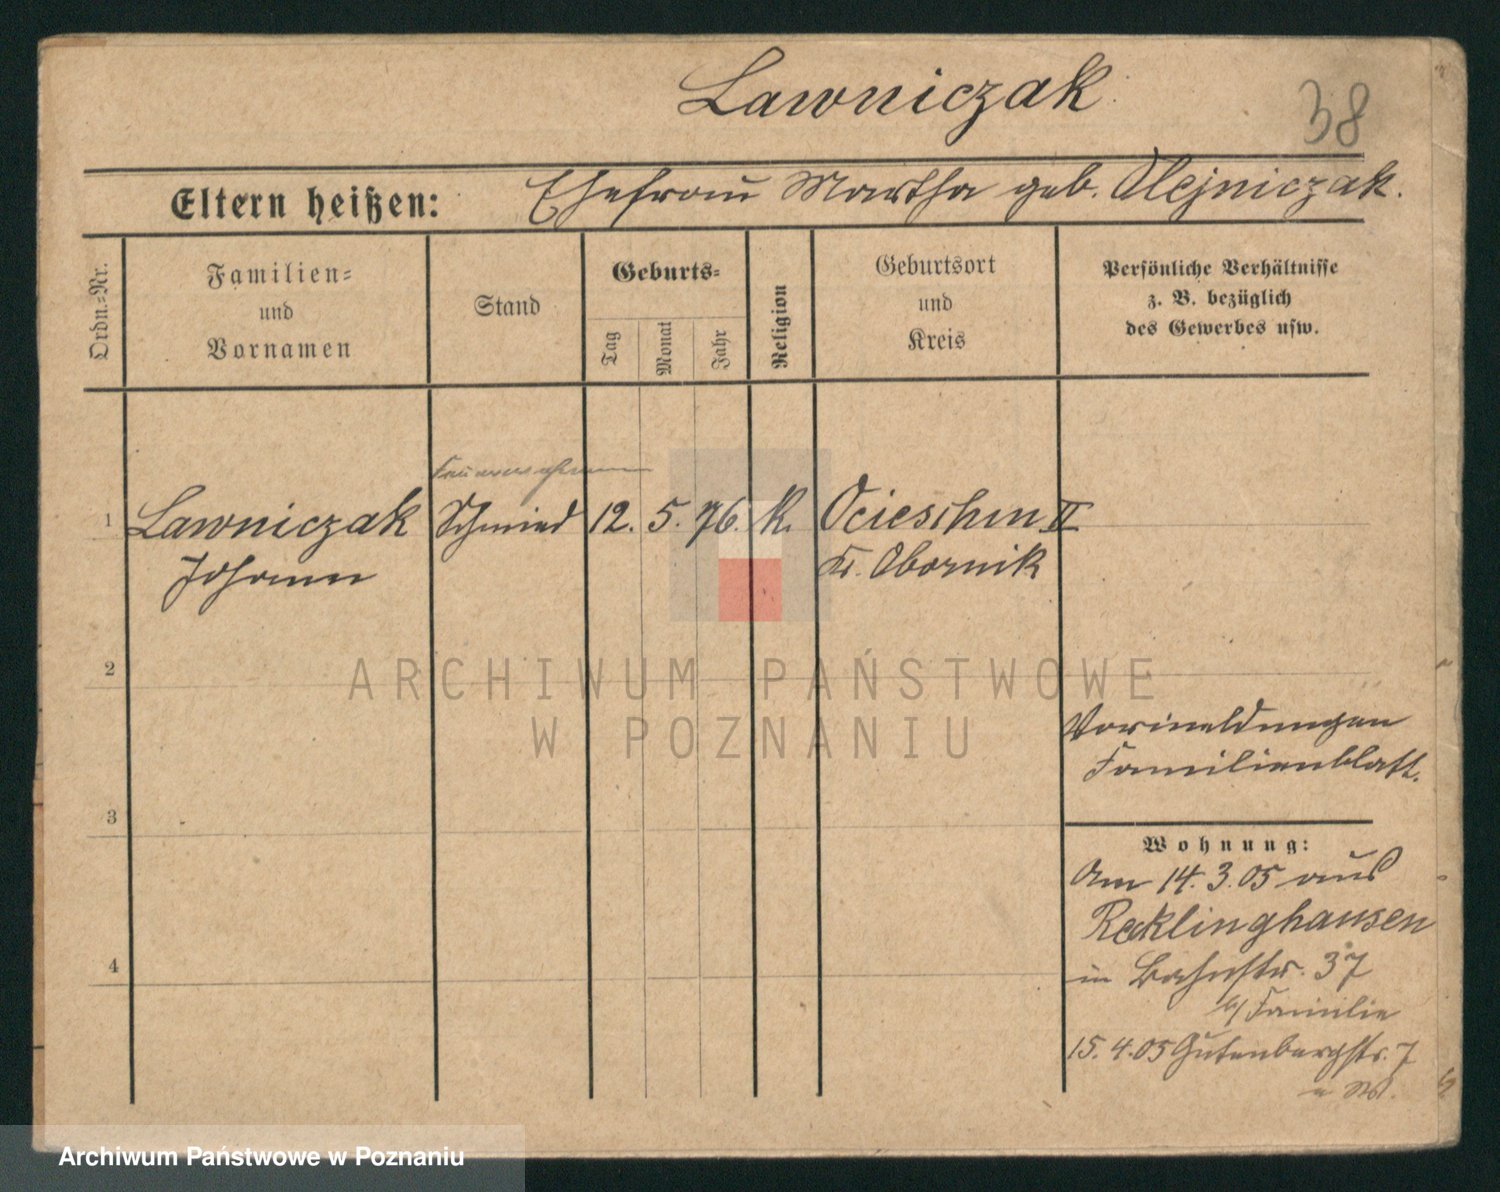 Lawniczak
38
Eltern heißen: Ehefrau Martha geb. Olejniczak.
Ordn.-Nr.
Familien-
und
Vornamen
Stand
Geburts-
Tag
Monat
Jahr
Religion
Geburtsort
und
Kreis
Persönliche Verhältnisse
z. B. bezüglich
des Gewerbes usw.
1 Lawniczak Schmied 12. 5. 76. k. Ocieschin II
Johann Kr. Obornik
2
ARCHIWUM PAŃSTWOWE
W POZNANIU
Vormeldungen
Familienblatt.
3
Wohnung:
Am 14.3.05 aus
Recklinghausen
in Bahnstr. 37
b/ Familie
4
15.4.05 Gutenbergstr. 7
Archiwum Państwowe w Poznaniu